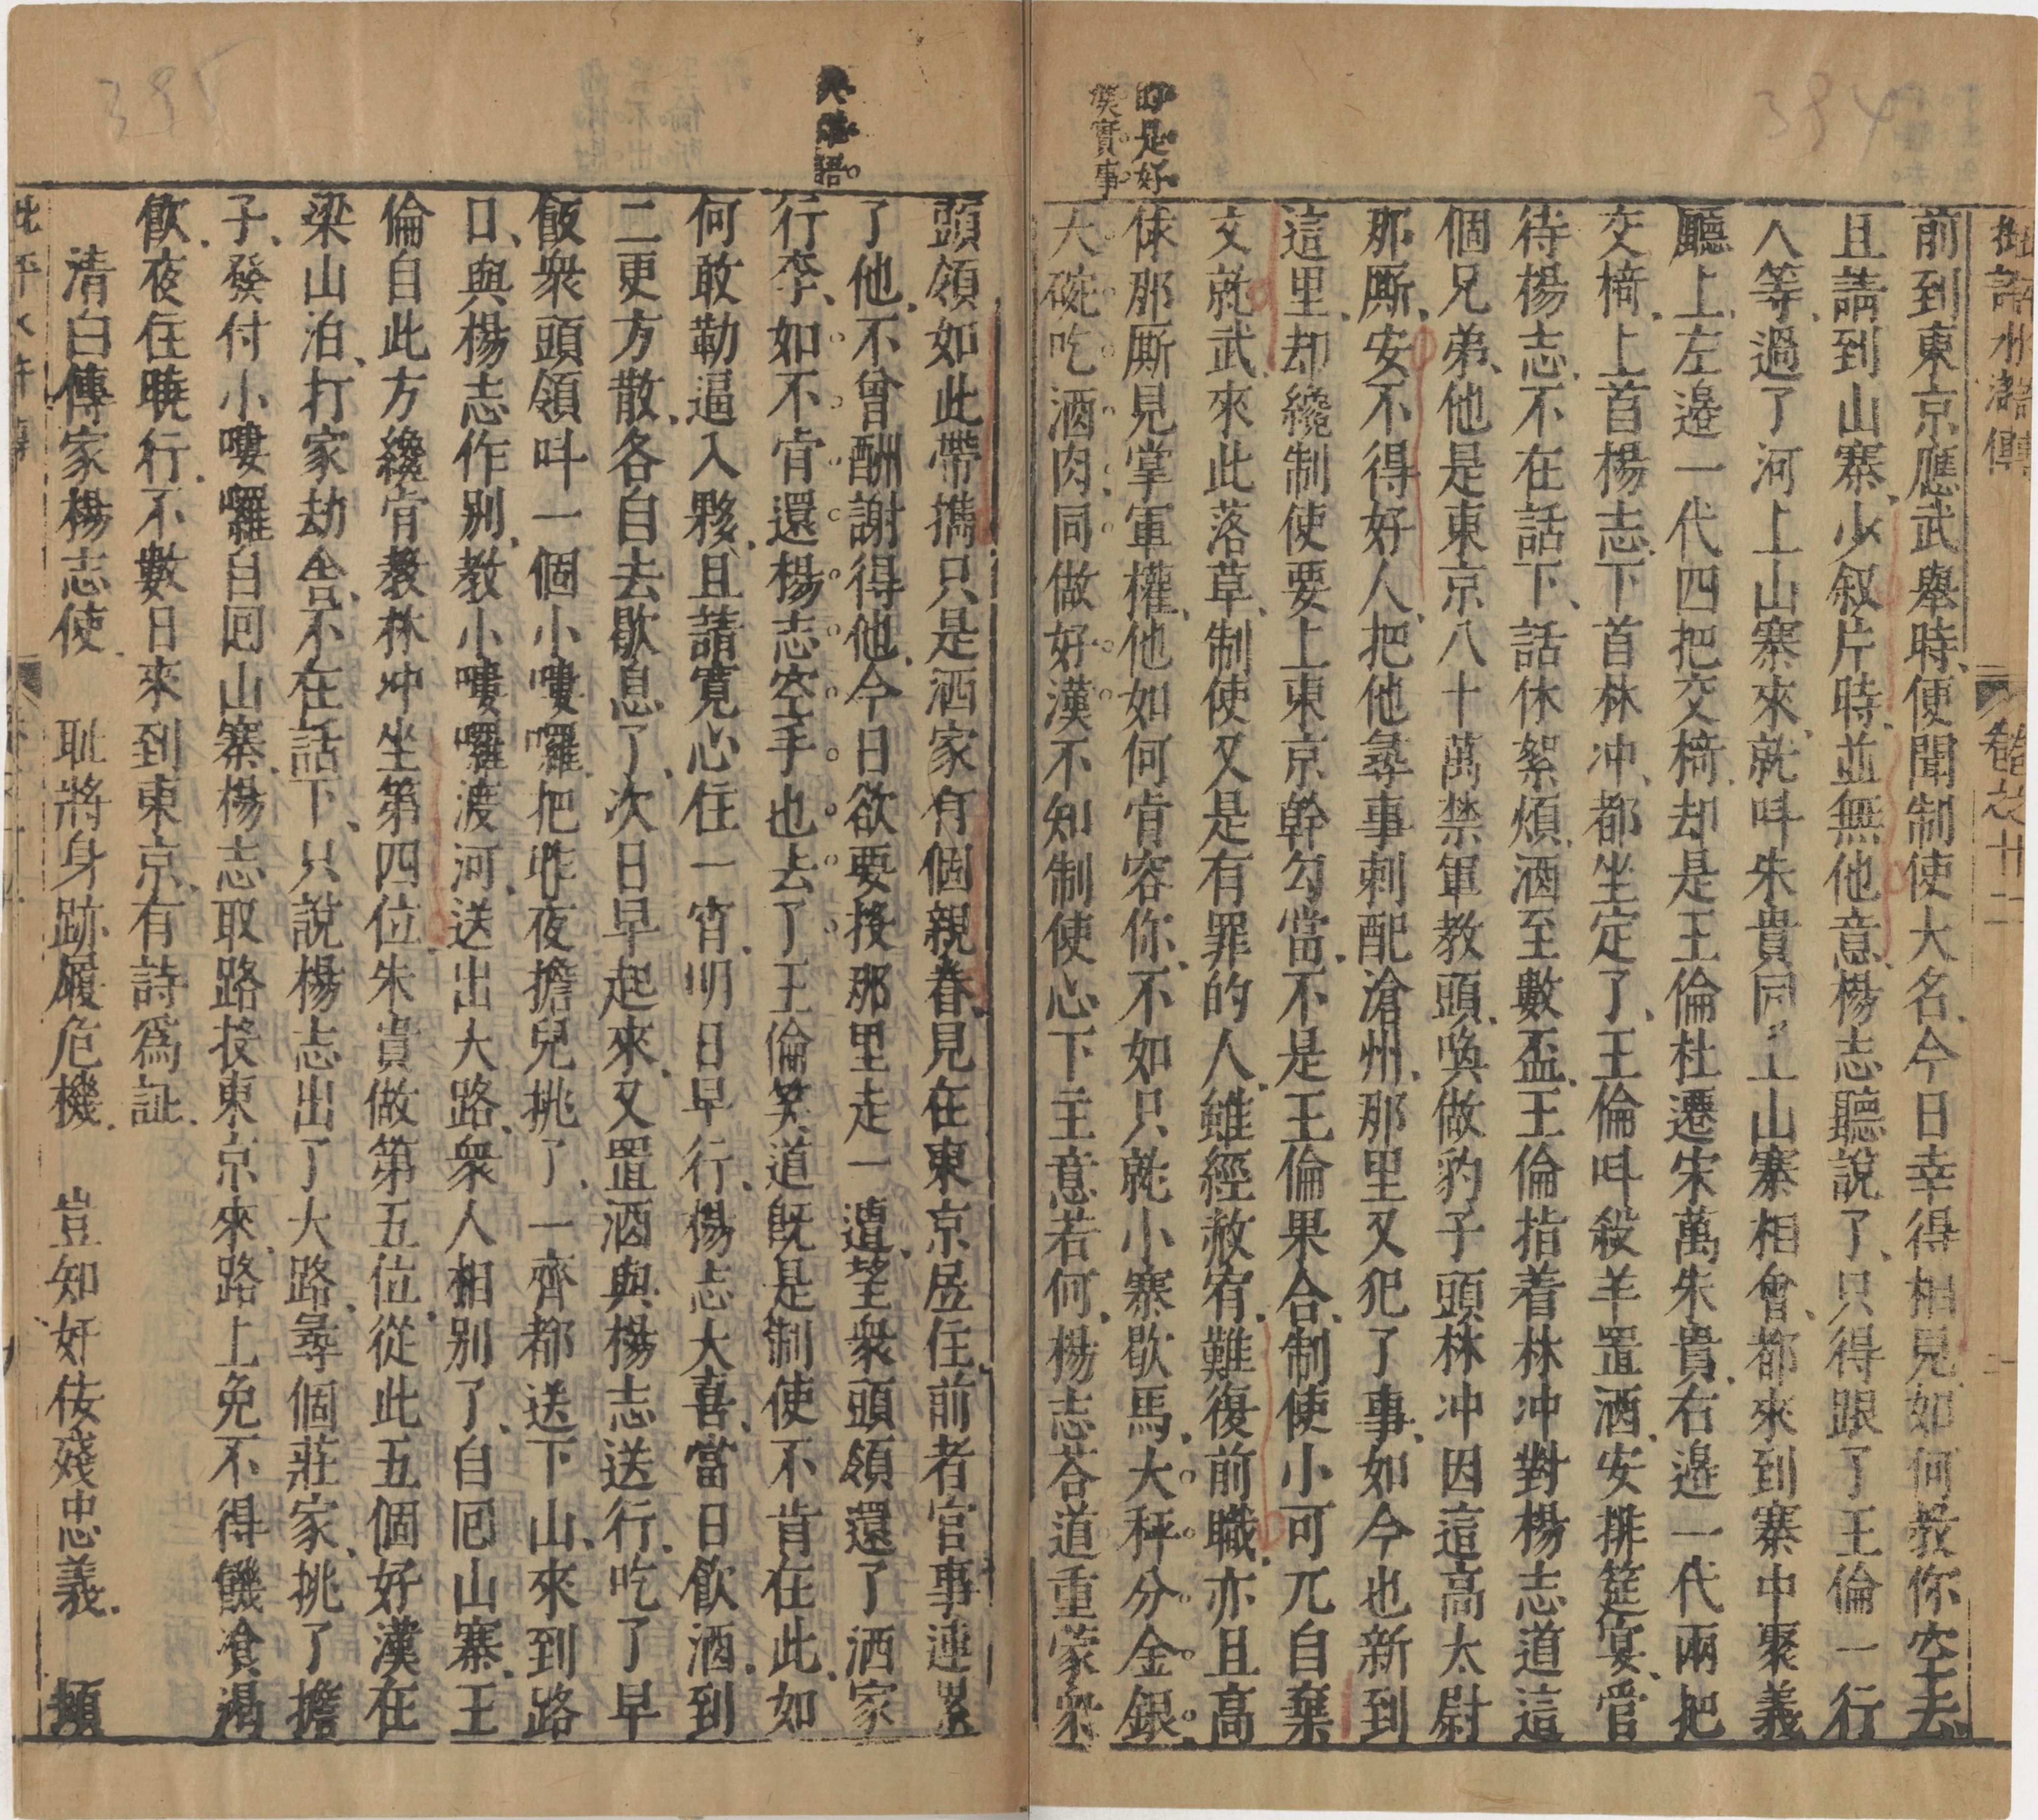 批評水滸傳
卷之十二
前到東京應武舉時、便聞制使大名、今日幸得相見、如何教你空去、
且請到山寨、少叙片時、並無他意、楊志聽說了、只得跟了王倫一行
人等、過了河、上山寨來、就呌朱貴同上山寨相會、都來到寨中聚義
廳上、左邊一代四把交椅、却是王倫杜遷宋萬朱貴、右邊一代兩把
交椅、上首楊志、下首林冲、都坐定了、王倫呌殺羊置酒、安排筵宴、管
待楊志、不在話下、話休絮煩、酒至數盃、王倫指着林冲對楊志道這
個兄弟、他是東京八十萬禁軍教頭、喚做豹子頭林冲因這高太尉
那厮、安不得好人、把他尋事刺配滄州、那里又犯了事、如今也新到
這里、却纔制使要上東京幹勾當、不是王倫果合、制使小可兀自棄
文就武、來此落草、制使又是有罪的人、雖經赦宥、難復前職、亦且高
俅那厮見掌軍權、他如何肯容你、不如只就小寨歇馬、大秤分金銀、
大碗吃酒肉、同做好漢不知制使心下主意若何、楊志荅道重蒙衆
的是好
漢實事
頭領如此帶攜只是洒家有個親眷、見在東京居住、前者官事連累
了他、不曾酬謝得他、今日欲要投那里走一遭、望衆頭領還了洒家
行李、如不肯還楊志空手也去了王倫笑道旣是制使不肯在此、如
何敢勒逼入夥、且請寬心住一宵、明日早行、楊志大喜、當日飲酒、到
二更方散、各自去歇息了、次日早起來、又置酒與楊志送行、吃了早
飯衆頭領呌一個小嘍囉、把昨夜擔兒挑了、一齊都送下山、來到路
口、與楊志作别、教小嘍囉渡河、送出大路、衆人相别了、自囘山寨、王
倫自此方纔肯教林冲坐第四位、朱貴做第五位、從此五個好漢在
梁山泊、打家劫舍、不在話下、只說楊志出了大路、尋個莊家、挑了擔
子、發付小嘍囉自囘山寨、楊志取路投東京來、路上免不得饑飡渴
飲、夜住曉行、不數日來到東京、有詩爲証、
清白傳家楊志使、 耻將身跡履危機、 豈知奸佞殘忠義、 頓